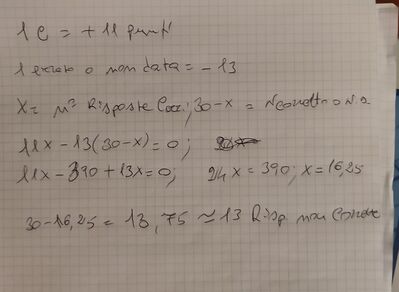 1 C = + 11 punti
1 errore o non data = - 13
X = n° Risposte Corr.; 30-x = N corrette o N.D
11x - 13(30-x) = 0;
11x - 390 + 13x = 0; 24x = 390; x = 16,25
30 - 16,25 = 13,75 ≃ 13 Risp non Corrette